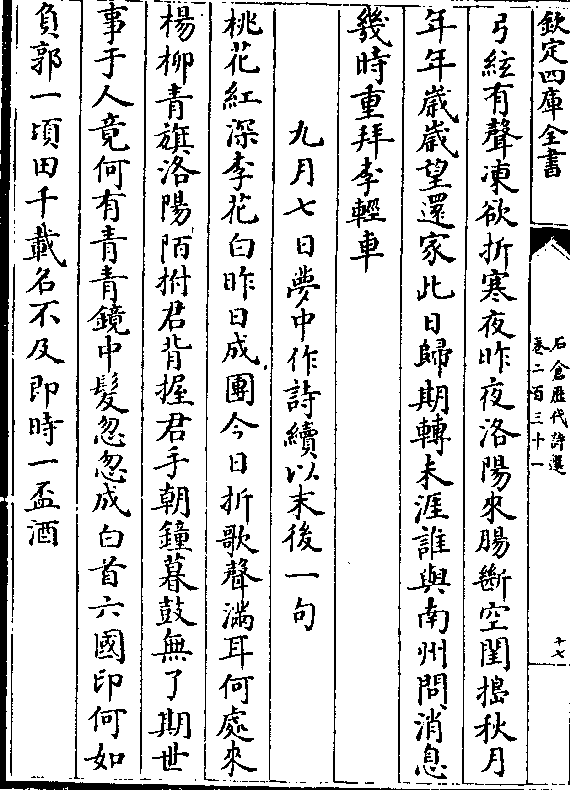 欽定四庫全書
石倉歷代詩選
卷二百三十一
十七
弓絃有聲凍欲折寒夜昨夜洛陽來腸斷空閨搗秋月
年年歲歲望還家此日歸期轉未涯誰與南州問消息
幾時重拜李輕車
九月七日夢中作詩續以末後一句
桃花紅深李花白昨日成團今日折歌聲滿耳何處來
楊柳青旗洛陽陌拊君背握君手朝鐘暮鼓無了期世
事于人竟何有青青鏡中髮忽忽成白首六國印何如
負郭一頃田千載名不及即時一盃酒